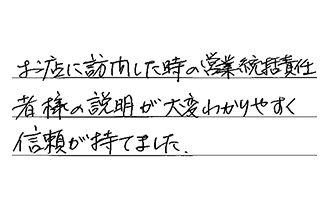 お店に訪問した時の営業統括責任
者様の説明が大変わかりやすく
信頼が持てました.